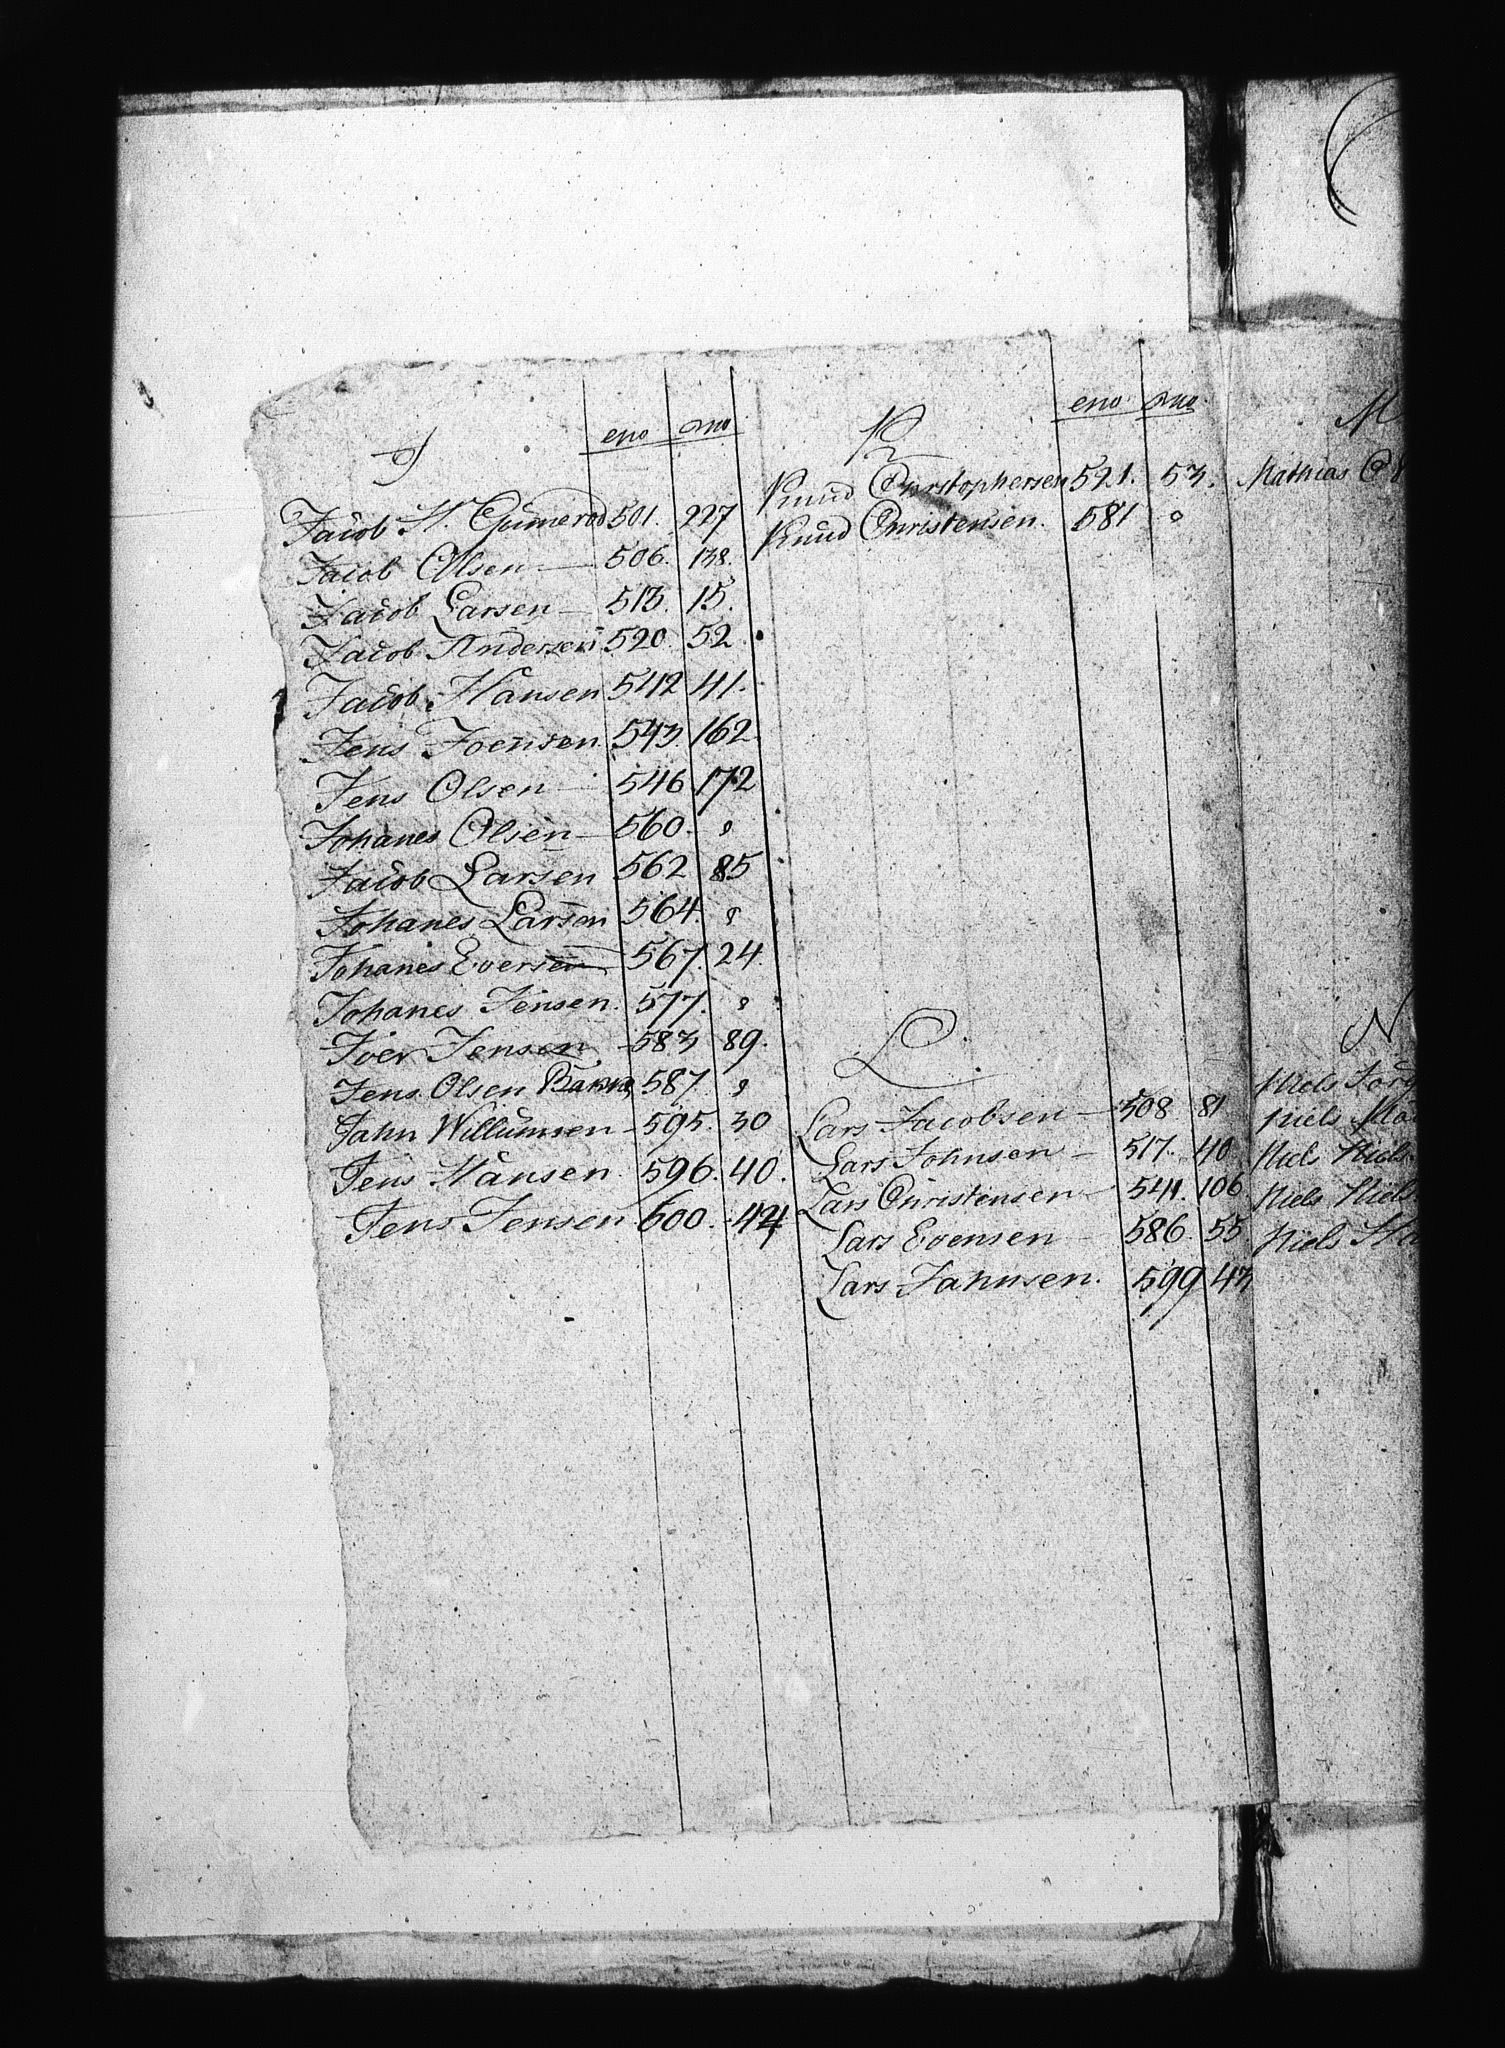 J eno mo
Jacob H. Gumerød 501. 227
Jacob Olsen — 506. 138.
Jacob Larsen — 513. 15.
Jacob Andersen 520. 52
Jacob Hansen 542 41.
Jens Joensen. 543. 162
Jens Olsen — 546 172
Johanes Olsen — 560. "
Jacob Larsen 562 85
Johanes Larsen 564. "
Johanes Eversen 567. 24.
Johanes Jensen. 577. "
Joer Jensen. 583 89.
Jens Olsen 587. "
Jahn Willumsen 595. 30
Jens Hansen. 596. 40.
Jens Jensen 600. 44
K eno mo
Knud Christophersen 521. 53.
Knud Christensen. 581 "
L.
Lars Jacobsen — 508 81
Lars Johnsen — 517. 40
Lars Christensen — 541. 106
Lars Evensen — 586. 55
Lars Jahnsen. 599 43
M
Mathias
N
Niels
Niels
Niels Niels
Niels Niels
Niels